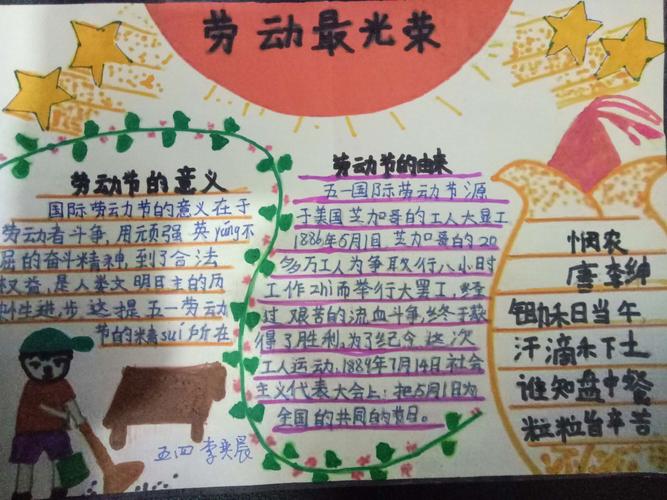 劳动最光荣
劳动节的意义
国际劳动节的意义在于
劳动者斗争,用顽强英yǒng不
屈的奋斗精神,到了合法
权益,是人类文明日主的历
史性进步这提五一劳动
节的精sui所在
劳动节的由来
五一国际劳动节源
于美国芝加哥的工人大显工
1886年5月1日,芝加哥的20
多万工人为争取行八小时
工作zhi而举行大罢工,经
过艰苦的流血斗争,终于获
得了胜利,为了纪今这次
工人运动.1889年7月14日社会
主义代表大会上:把5月1日为
全国的共同的节日。
悯农
唐李绅
锄禾日当午
汗滴禾下土
谁知盘中餐
粒粒皆辛苦
五四 李奕晨